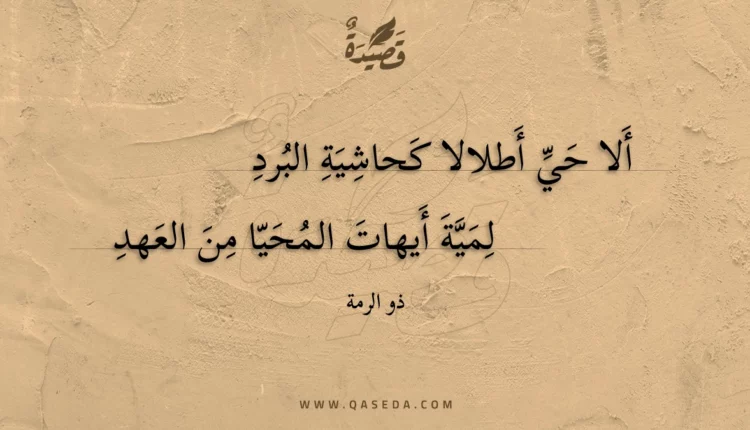 قَصِيْدَةٌ
أَلا حَيِّ أَطلالا كَحاشِيَةِ البُردِ
لِمَيَّةَ أَيهاتَ المُحَيّا مِنَ العَهدِ
ذو الرمة
WWW.QASEDA.COM